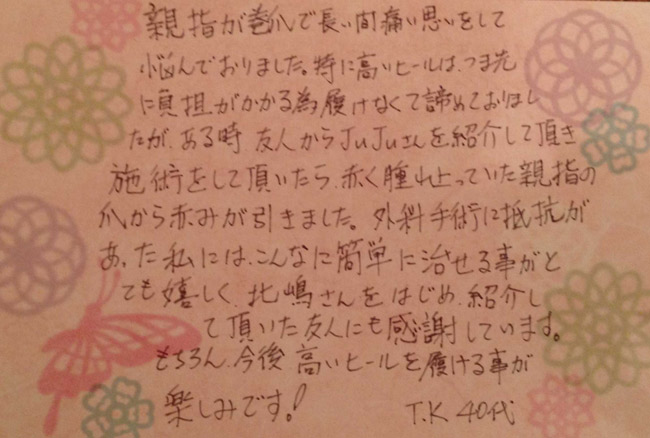 親指が巻爪で長い間痛い思いをして
悩んでおりました。特に高いヒールは、つま先
に負担がかかる為履けなくて諦めておりまし
たが、ある時 友人からJuJuさんを紹介して頂き
施術をして頂いたら、赤く腫れ上っていた親指の
爪から赤みが引きました。外科手術に抵抗が
あった私には、こんなに簡単に治せる事がと
ても嬉しく、北嶋さんをはじめ、紹介し
て頂いた友人にも感謝しています。
もちろん、今後 高いヒールを履ける事が
楽しみです!
T.K 40代